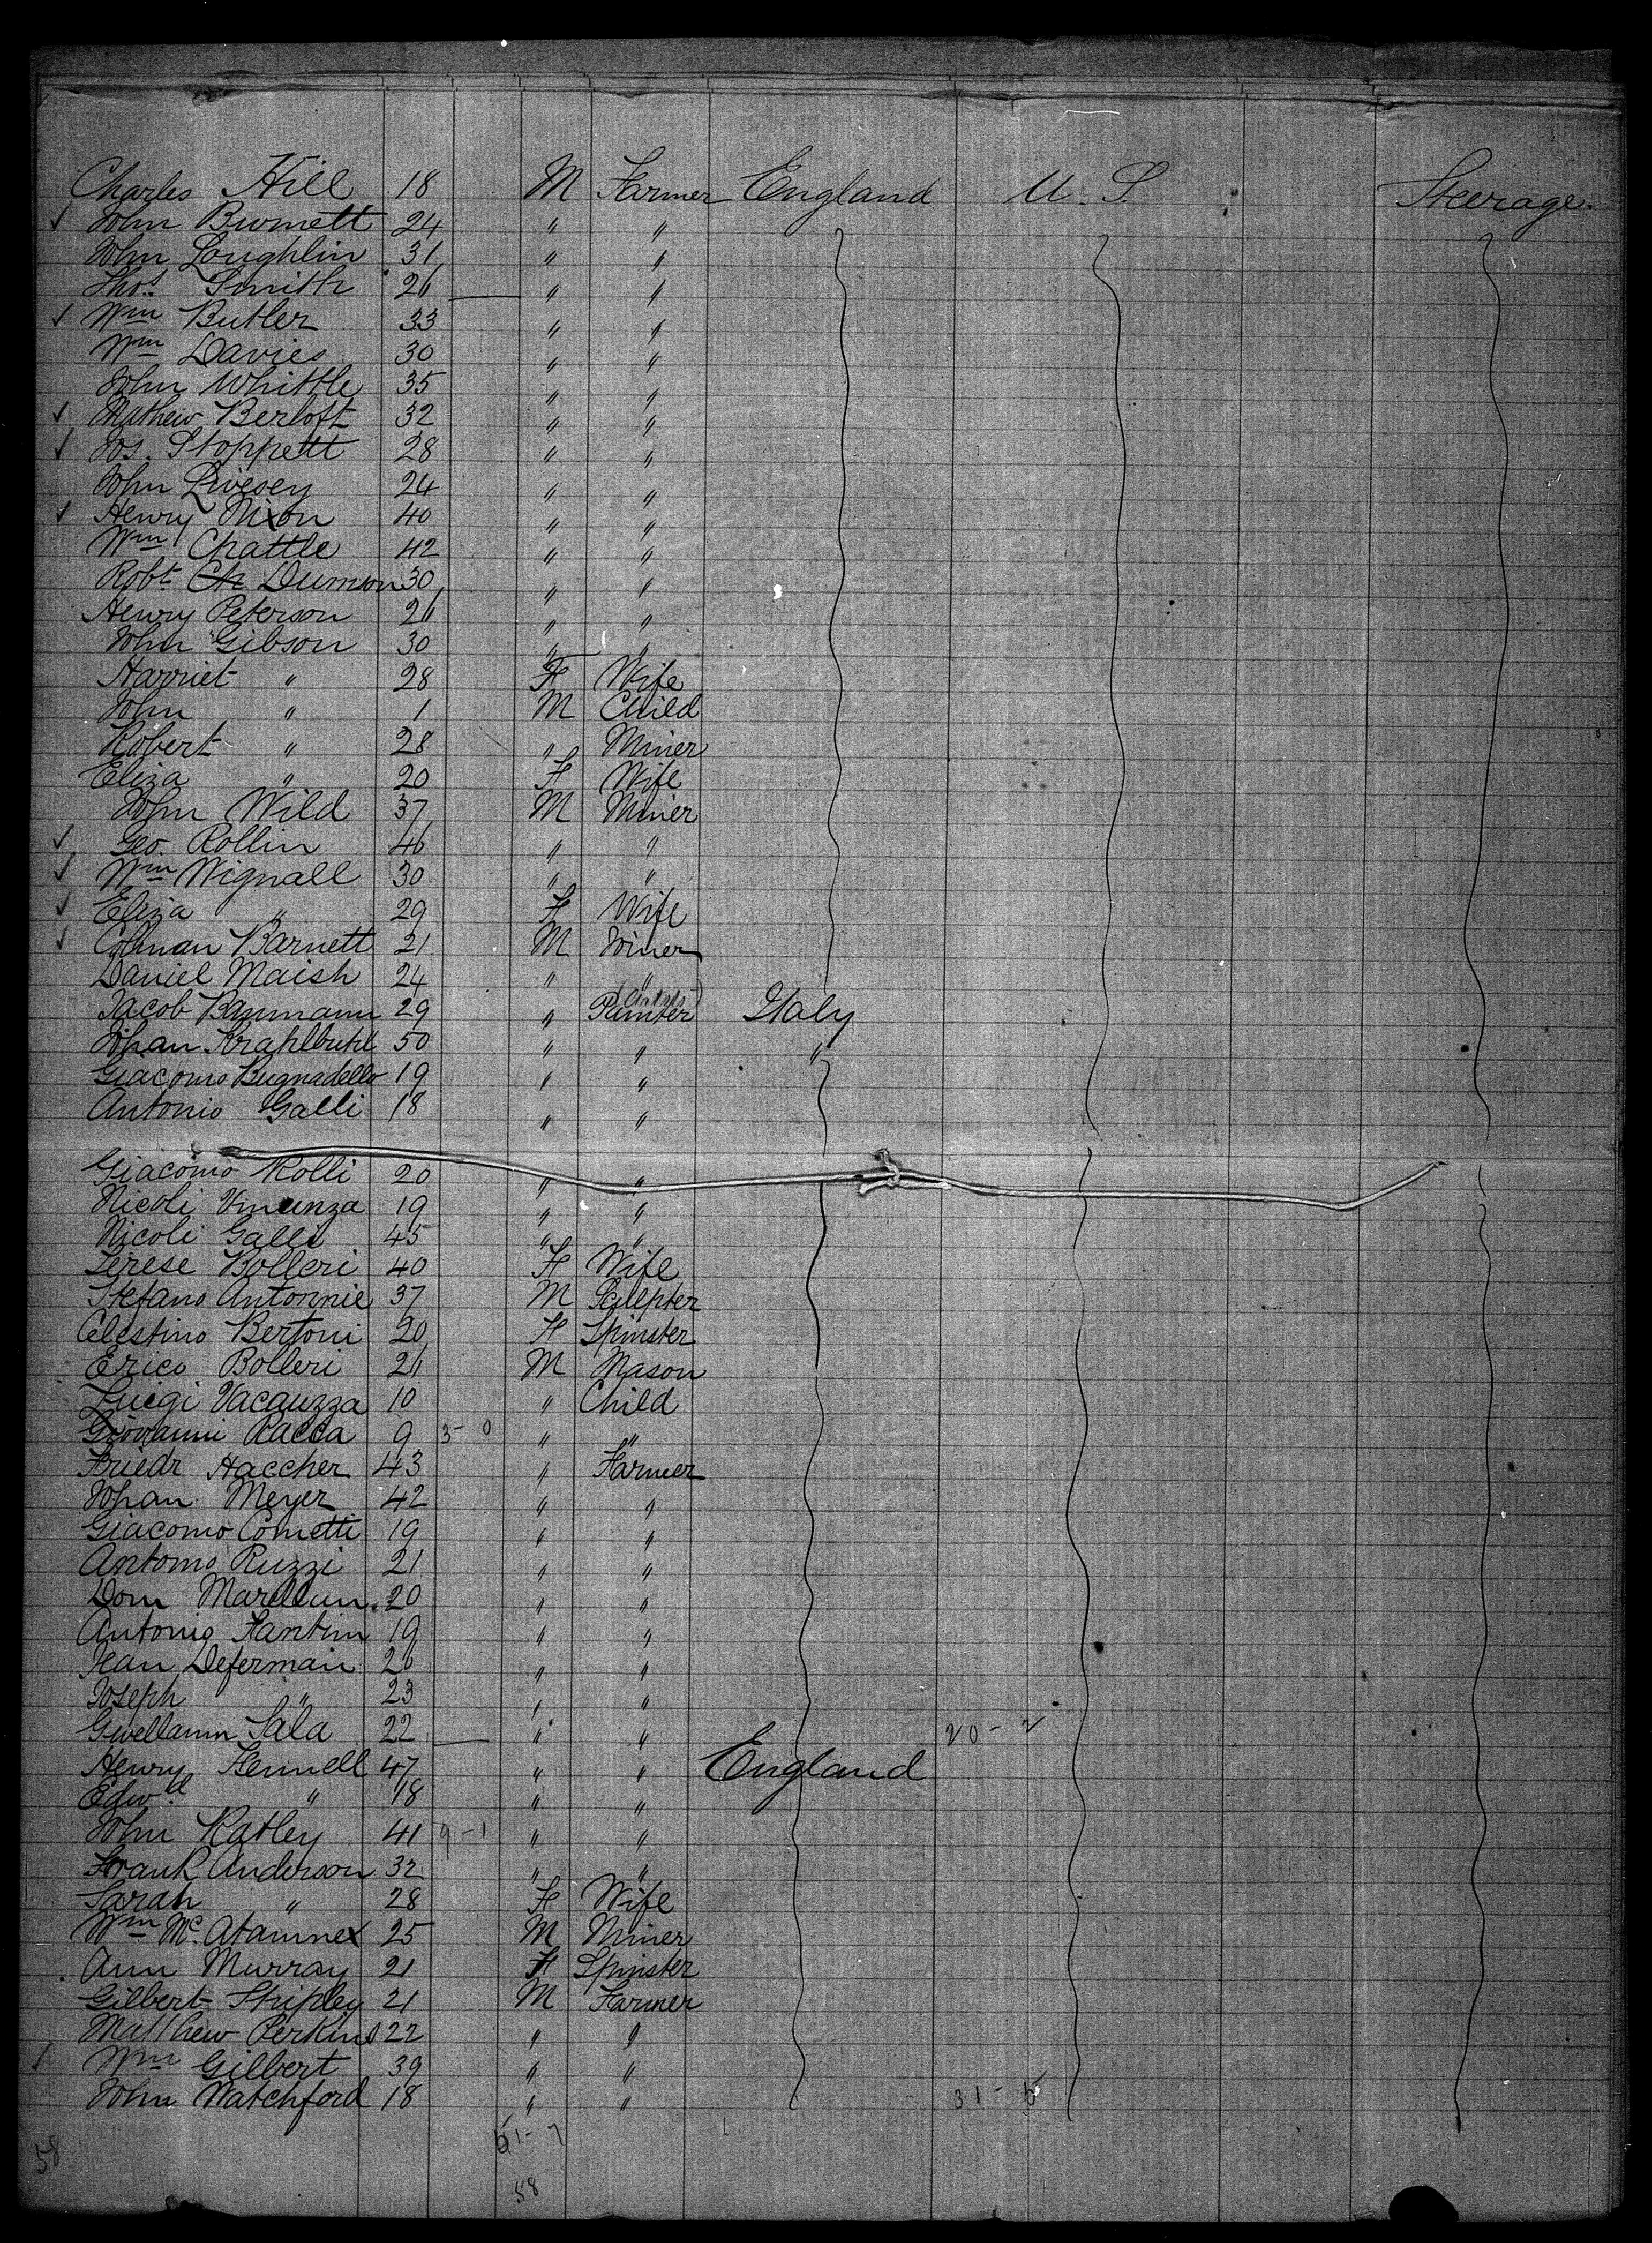 Charles Hill 18 M Farmer England U.S. Steerage.
✓ John Burnett 24 " "
John Loughlin 31 " "
Thos. Smith 26 " "
✓ Wm Butler 33 " "
Wm Davies 30 " "
John Whittle 35 " "
✓ Mathew Berloft 32 " "
✓ Jos. Stoppett 28 " "
John Livesey 24 " "
✓ Henry Nixon 40 " "
Wm Chattle 42 " "
Robt Ch Dumson 30 " "
Henry Peterson 26 " "
John Gibson 30 " "
Harriet " 28 F Wife
John " 1 M Child
Robert " 28 " Miner
Eliza " 20 F Wife
John Wild 37 M Miner
✓ Geo. Rollin 46 " "
✓ Wm Wignall 30 " "
✓ Eliza " 29 F Wife
✓ Colman Barnett 21 M Joiner
Daniel Maish 24 " "
Jacob Baumann 29 " Painter Italy
Johan Krahlbuhl 50 " " "
Giacomo Bugnadello 19 " "
Antonio Galli 18 " "
Giacomo Rolli 20 " "
Nicoli Vincenza 19 " "
Nicoli Galli 45 " "
Terese Bolleri 40 F Wife
Stefano Antonnie 37 M Sculpter
Celestino Bertoni 20 F Spinster
Erico Bolleri 26 M Mason
Luigi Vacauzza 10 " Child
Giovanni Racca 9 3-0 " "
Friedr Haccher 43 " Farmer
Johan Meyer 42 " "
Giacomo Cometti 19 " "
Antomo Ruzzi 21 " "
Dom 20 " "
Antonio Fantim 19 " "
Jean Deferman 26 " "
Joseph " 23 " "
Sala 22 " " 20-2
Henry Fennell 47 " " England
Edwd " 18 " "
John Ratley 41 9-1 " "
Frank Anderson 32 " "
Sarah " 28 F Wife
Wm Mc. 25 M Miner
Ann Murray 21 F Spinster
Gilbert Shipley 21 M Farmer
Matthew Perkins 22 " "
✓ Wm Gilbert 39 " "
John Watchford 18 " " 31-5
51-7
58
58